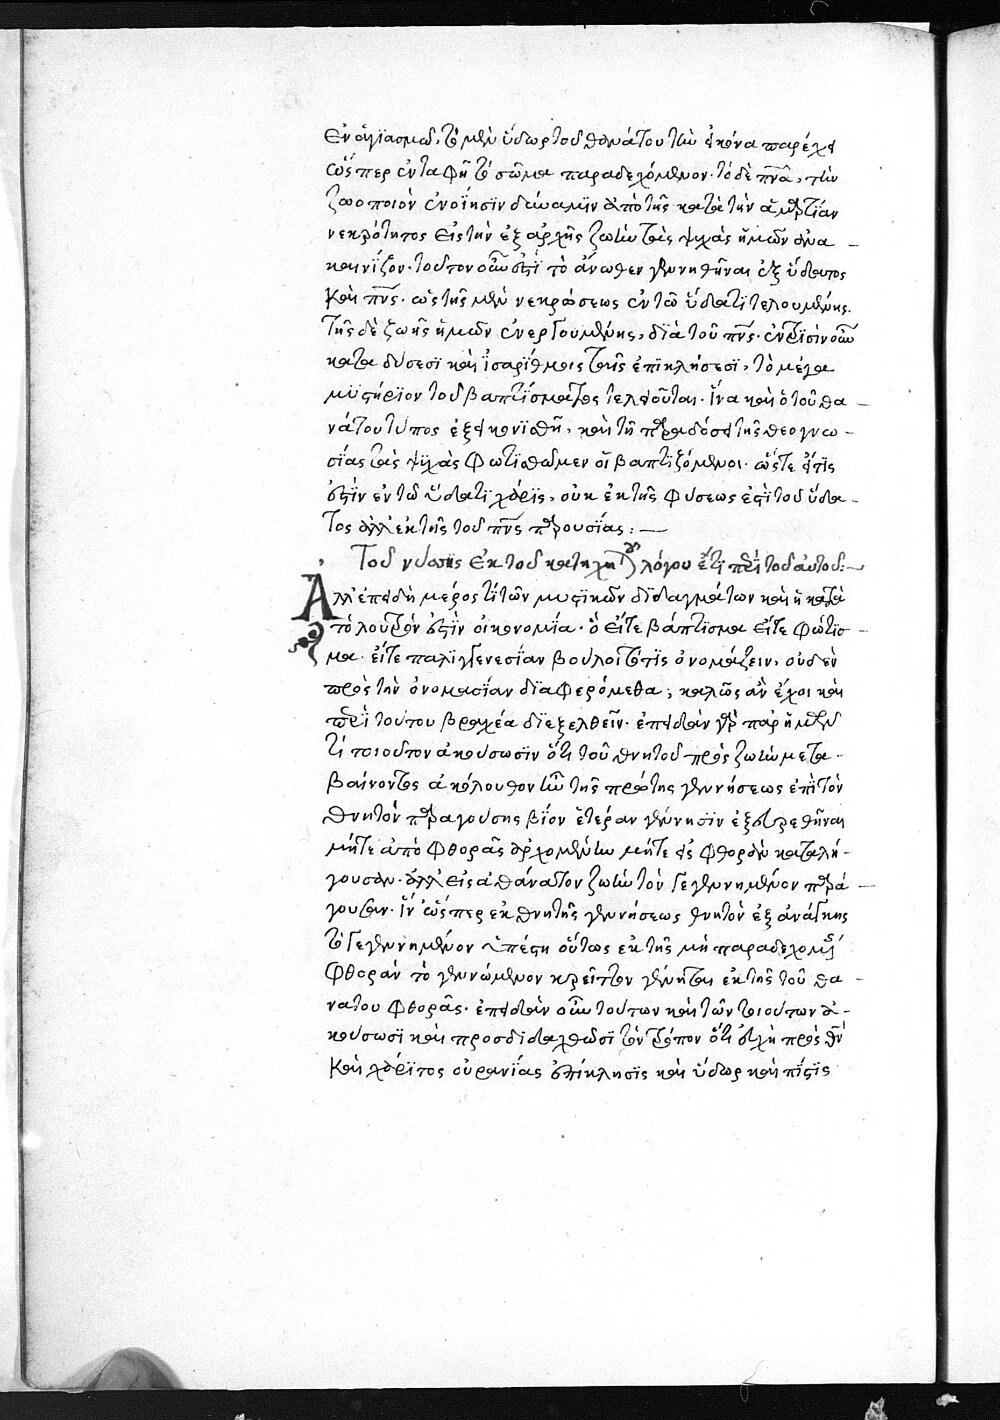 ἐν ἁγιασμῷ, τὸ μὲν ὕδωρ τοῦ θανάτου τὴν εἰκόνα παρέχει
ὥσπερ ἐν ταφῇ τὸ σῶμα παραδεχόμενον· τὸ δὲ πνᾶ, τὴν
ζωοποιὸν ἐνοίησϊν δύναμϊν ἀπὸ τῆς κατὰ τὴν ἁμαρτίαν
νεκρότητος εἰς τὴν ἐξ ἀρχῆς ζωὴν τὰς ψυχὰς ἡμῶν ἀνα-
καινίζον· τοῦτον οὖν ἐστϊ τὸ ἄνωθεν γεννηθῆναι ἐξ ὕδατος
καὶ πνς· ὡς τῆς μὲν νεκρώσεως ἐν τῷ ὕδατϊ τελουμένης.
τῆς δὲ ζωῆς ἡμῶν ἐνεργουμένης, διὰ τοῦ πνς· ἐν τρϊσὶν οὖν
καταδύσεσϊ καὶ ἰσαρίθμοις ταῖς ἐπικλήσεσϊ, τὸ μέγα
μυστήριον τοῦ βαπτίσματος τελειοῦται· ἵνα καὶ ὁ τοῦ θα-
νάτου τύπος ἐξεικονισθῇ, καὶ τῇ παραδόσει τῆς θεογνω-
σίας τὰς ψυχὰς φωτισθῶμεν οἱ βαπτϊζόμενοι· ὥστε εἴ τϊς
ἐστὶν ἐν τῷ ὕδατϊ χάρϊς, οὐκ ἐκ τῆς φύσεως ἐστὶ τοῦ ὕδα-
τος ἀλλ' ἐκ τῆς τοῦ πνς παρουσίας:—
Τοῦ νύσσης ἐκ τοῦ κατηχητικοῦ λόγου ἔτϊ περὶ τοῦ αὐτοῦ:—
Ἀλλ' ἐπειδὴ μέρος τϊ τῶν μυστικῶν διδαγμάτων καὶ ἡ κατὰ
τὸ λουτρὸν ἐστὶν οἰκονομία· ὃ εἴτε βάπτισμα εἴτε φώτισ-
μα· εἴτε παλϊγγενεσίαν βούλοιτό τϊς ὀνομάζειν, οὐδὲν
πρὸς τὴν ὀνομασίαν διαφερόμεθα, καλῶς ἂν ἔχοι καὶ
περὶ τούτου βραχέα διεξελθεῖν· ἐπειδὰν γὰρ παρ' ἡμῶν
τὶ τοιοῦτον ἀκούσωσϊν ὅτϊ τοῦ θνητοῦ πρὸς ζωὴν μετα-
βαίνοντος ἀκόλουθον ἦν τῆς πρώτης γεννήσεως ἐπὶ τὸν
θνητὸν παραγούσης βίον ἑτέραν γέννησϊν ἐξευρεθῆναι
μήτε ἀπὸ φθορᾶς ἀρχομένην μήτε εἰς φθορὰν καταλή-
γουσαν· ἀλλ' εἰς ἀθάνατον ζωὴν τὸν γεγεννημένον παρά-
γουσαν· ἵν' ὥσπερ ἐκ θνητῆς γεννήσεως θνητὸν ἐξ ἀνάγκης
τὸ γεγεννημένον ὑπέστη οὕτως ἐκ τῆς μὴ παραδεχομένης
φθορὰν τὸ γεννώμενον κρεῖττον γένηται ἐκ τῆς τοῦ θα-
νάτου φθορᾶς· ἐπειδὰν οὖν τούτων καὶ τῶν τοιούτων ἀ-
κούσωσϊ καὶ προσδιδαχθῶσϊ τὸν τρόπον ὅτϊ εὐχὴ πρὸς θν
καὶ χάριτος οὐρανίας ἐπίκλησϊς καὶ ὕδωρ καὶ πίστϊς